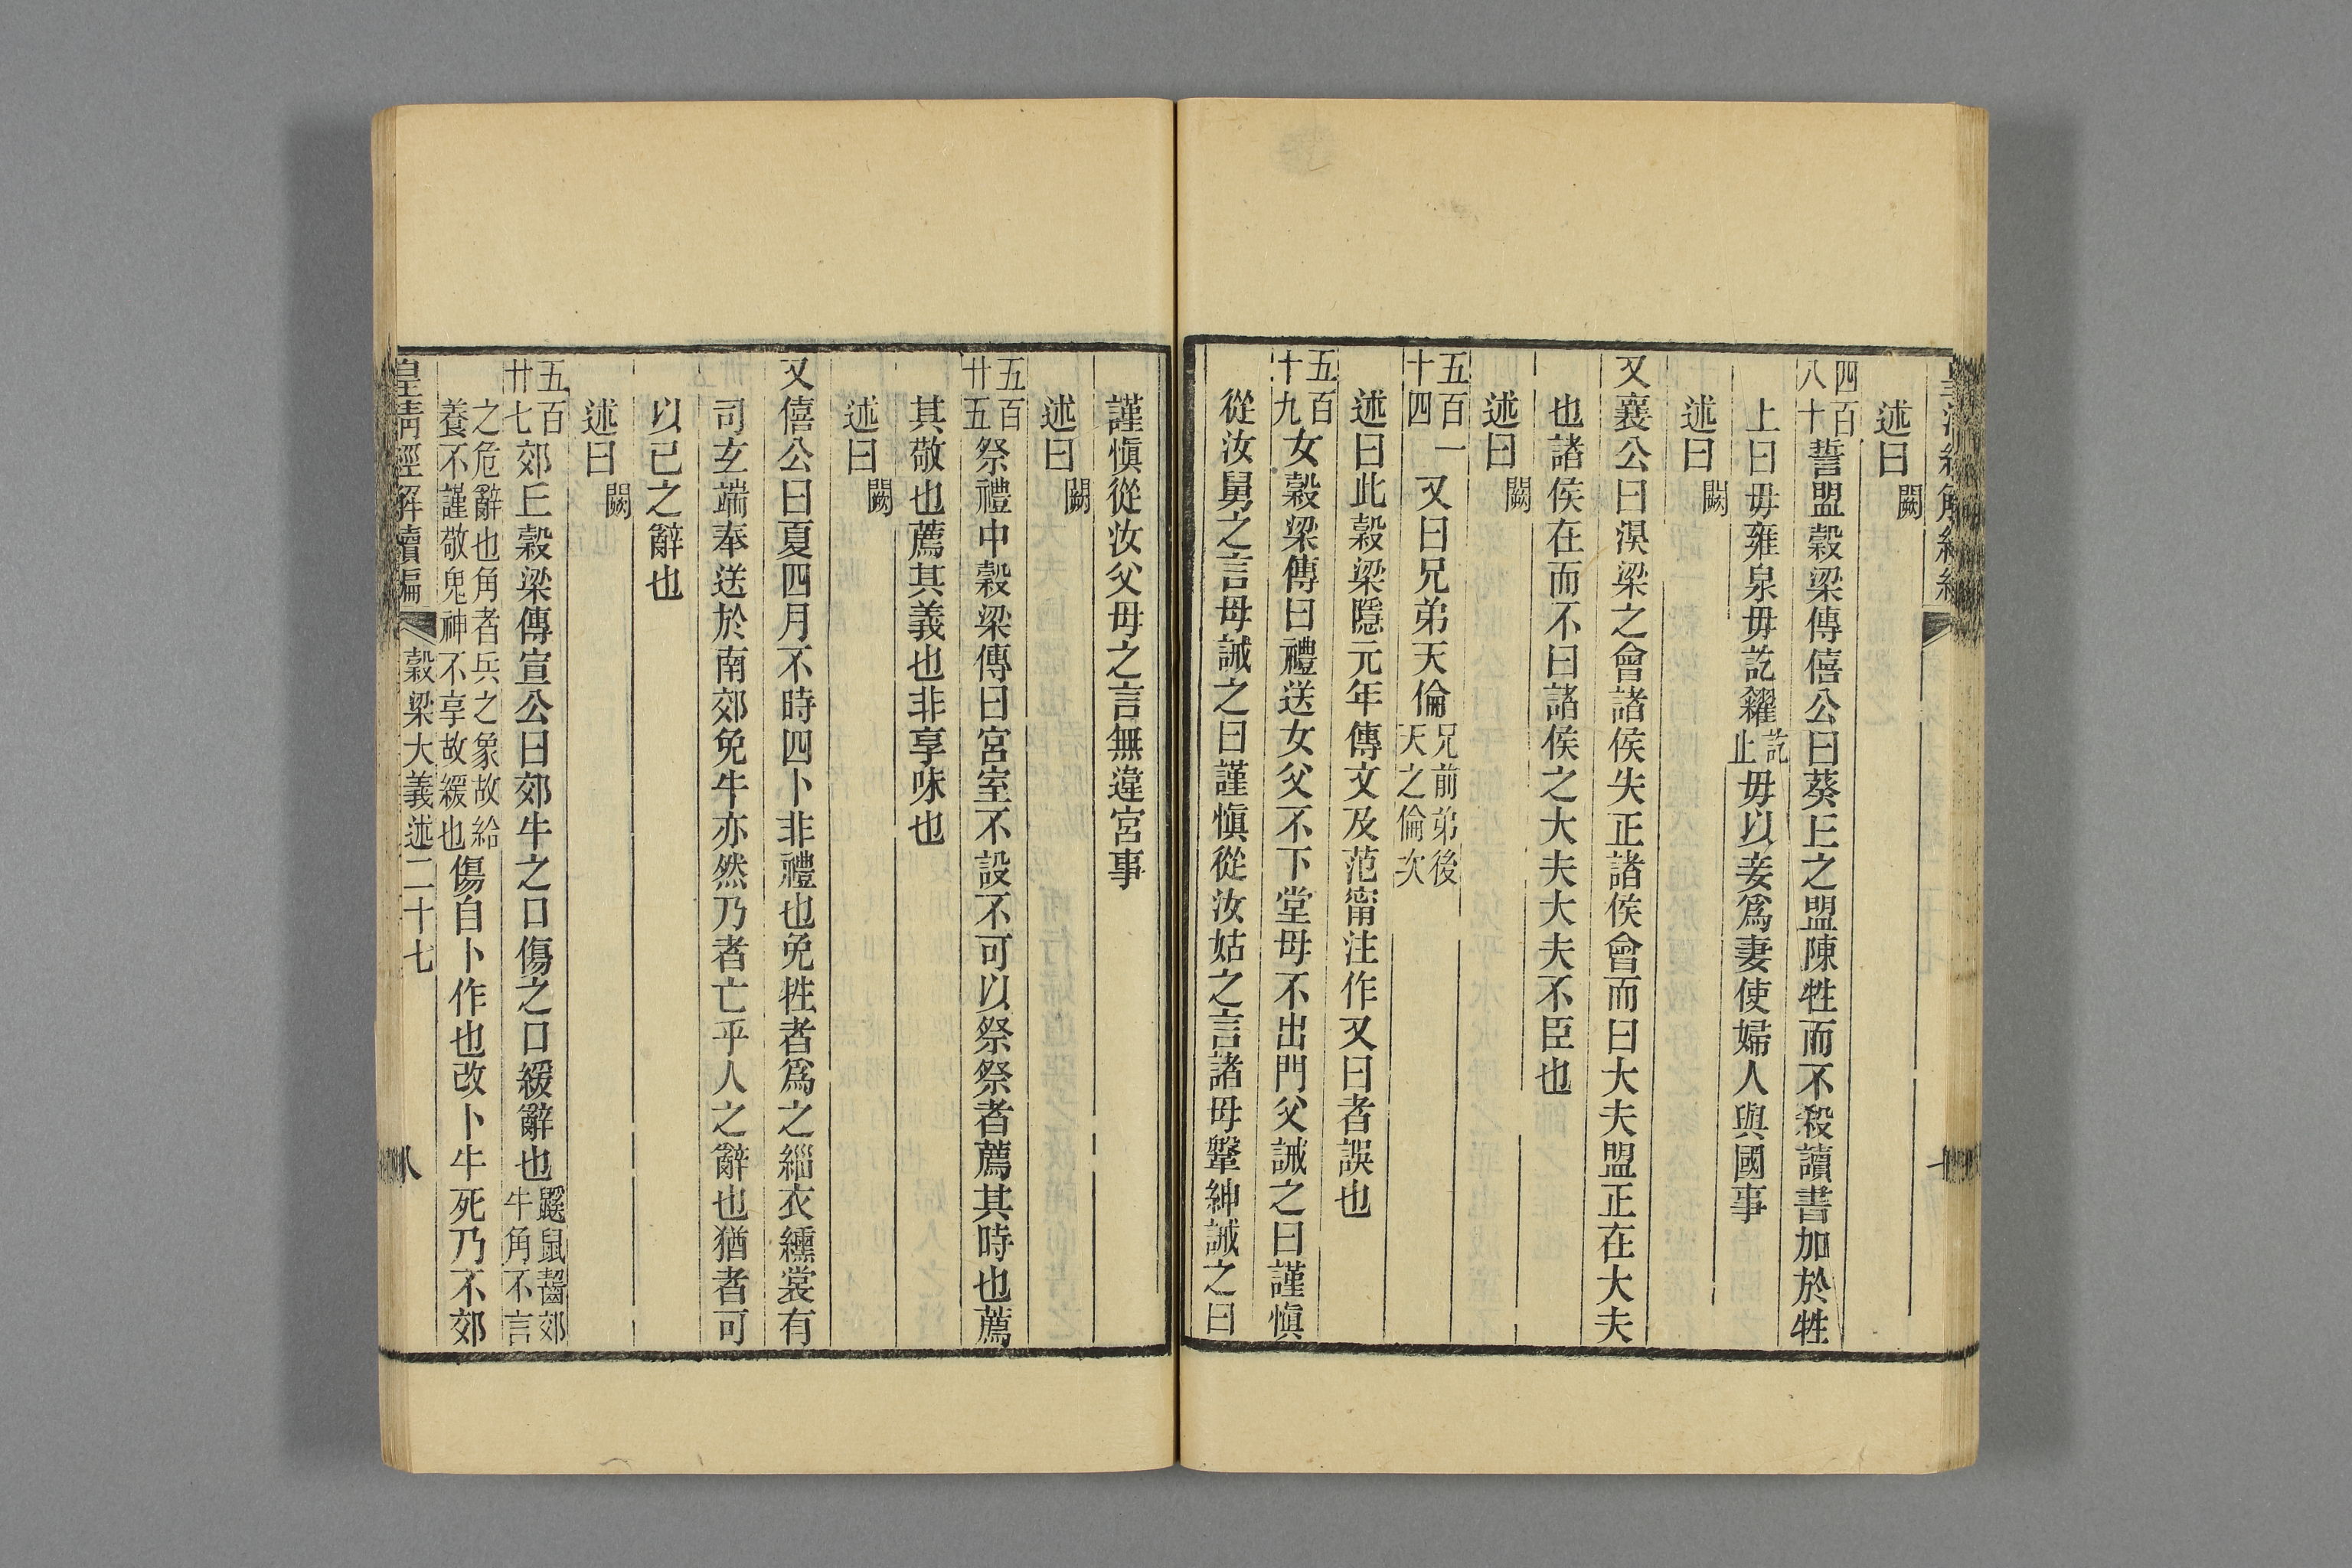 述曰闕
四百八十誓盟穀梁傳僖公曰葵丘之盟陳牲而不殺讀書加於牲
上曰毋雍泉毋訖糴訖止毋以妾爲妻使婦人與國事
述曰闕
又襄公曰溴梁之會諸侯失正諸侯會而曰大夫盟正在大夫
也諸侯在而不曰諸侯之大夫大夫不臣也
述曰闕
五百一十四又曰兄弟天倫兄前弟後天之倫次
述曰此穀梁隱元年傳文及范甯注作又曰者誤也
五百十九女穀梁傳曰禮送女父不下堂母不出門父誡之曰謹愼
從汝舅之言母誡之曰謹愼從汝姑之言諸母鞶紳誡之曰
謹愼從汝父母之言無違宮事
述曰闕
五百廿五祭禮中穀梁傳曰宮室不設不可以祭祭者薦其時也薦
其敬也薦其義也非享味也
述曰闕
又僖公曰夏四月不時四卜非禮也免牲者爲之緇衣纁裳有
司玄端奉送於南郊免牛亦然乃者亡乎人之辭也猶者可
以已之辭也
述曰闕
五百廿七郊丘穀梁傳宣公曰郊牛之口傷之口緩辭也鼷鼠齧郊牛角不言
之危辭也角者兵之象故給養不謹敬鬼神不享故緩也傷自卜作也改卜牛死乃不郊
皇清經解續編 穀梁大義述二十七 八